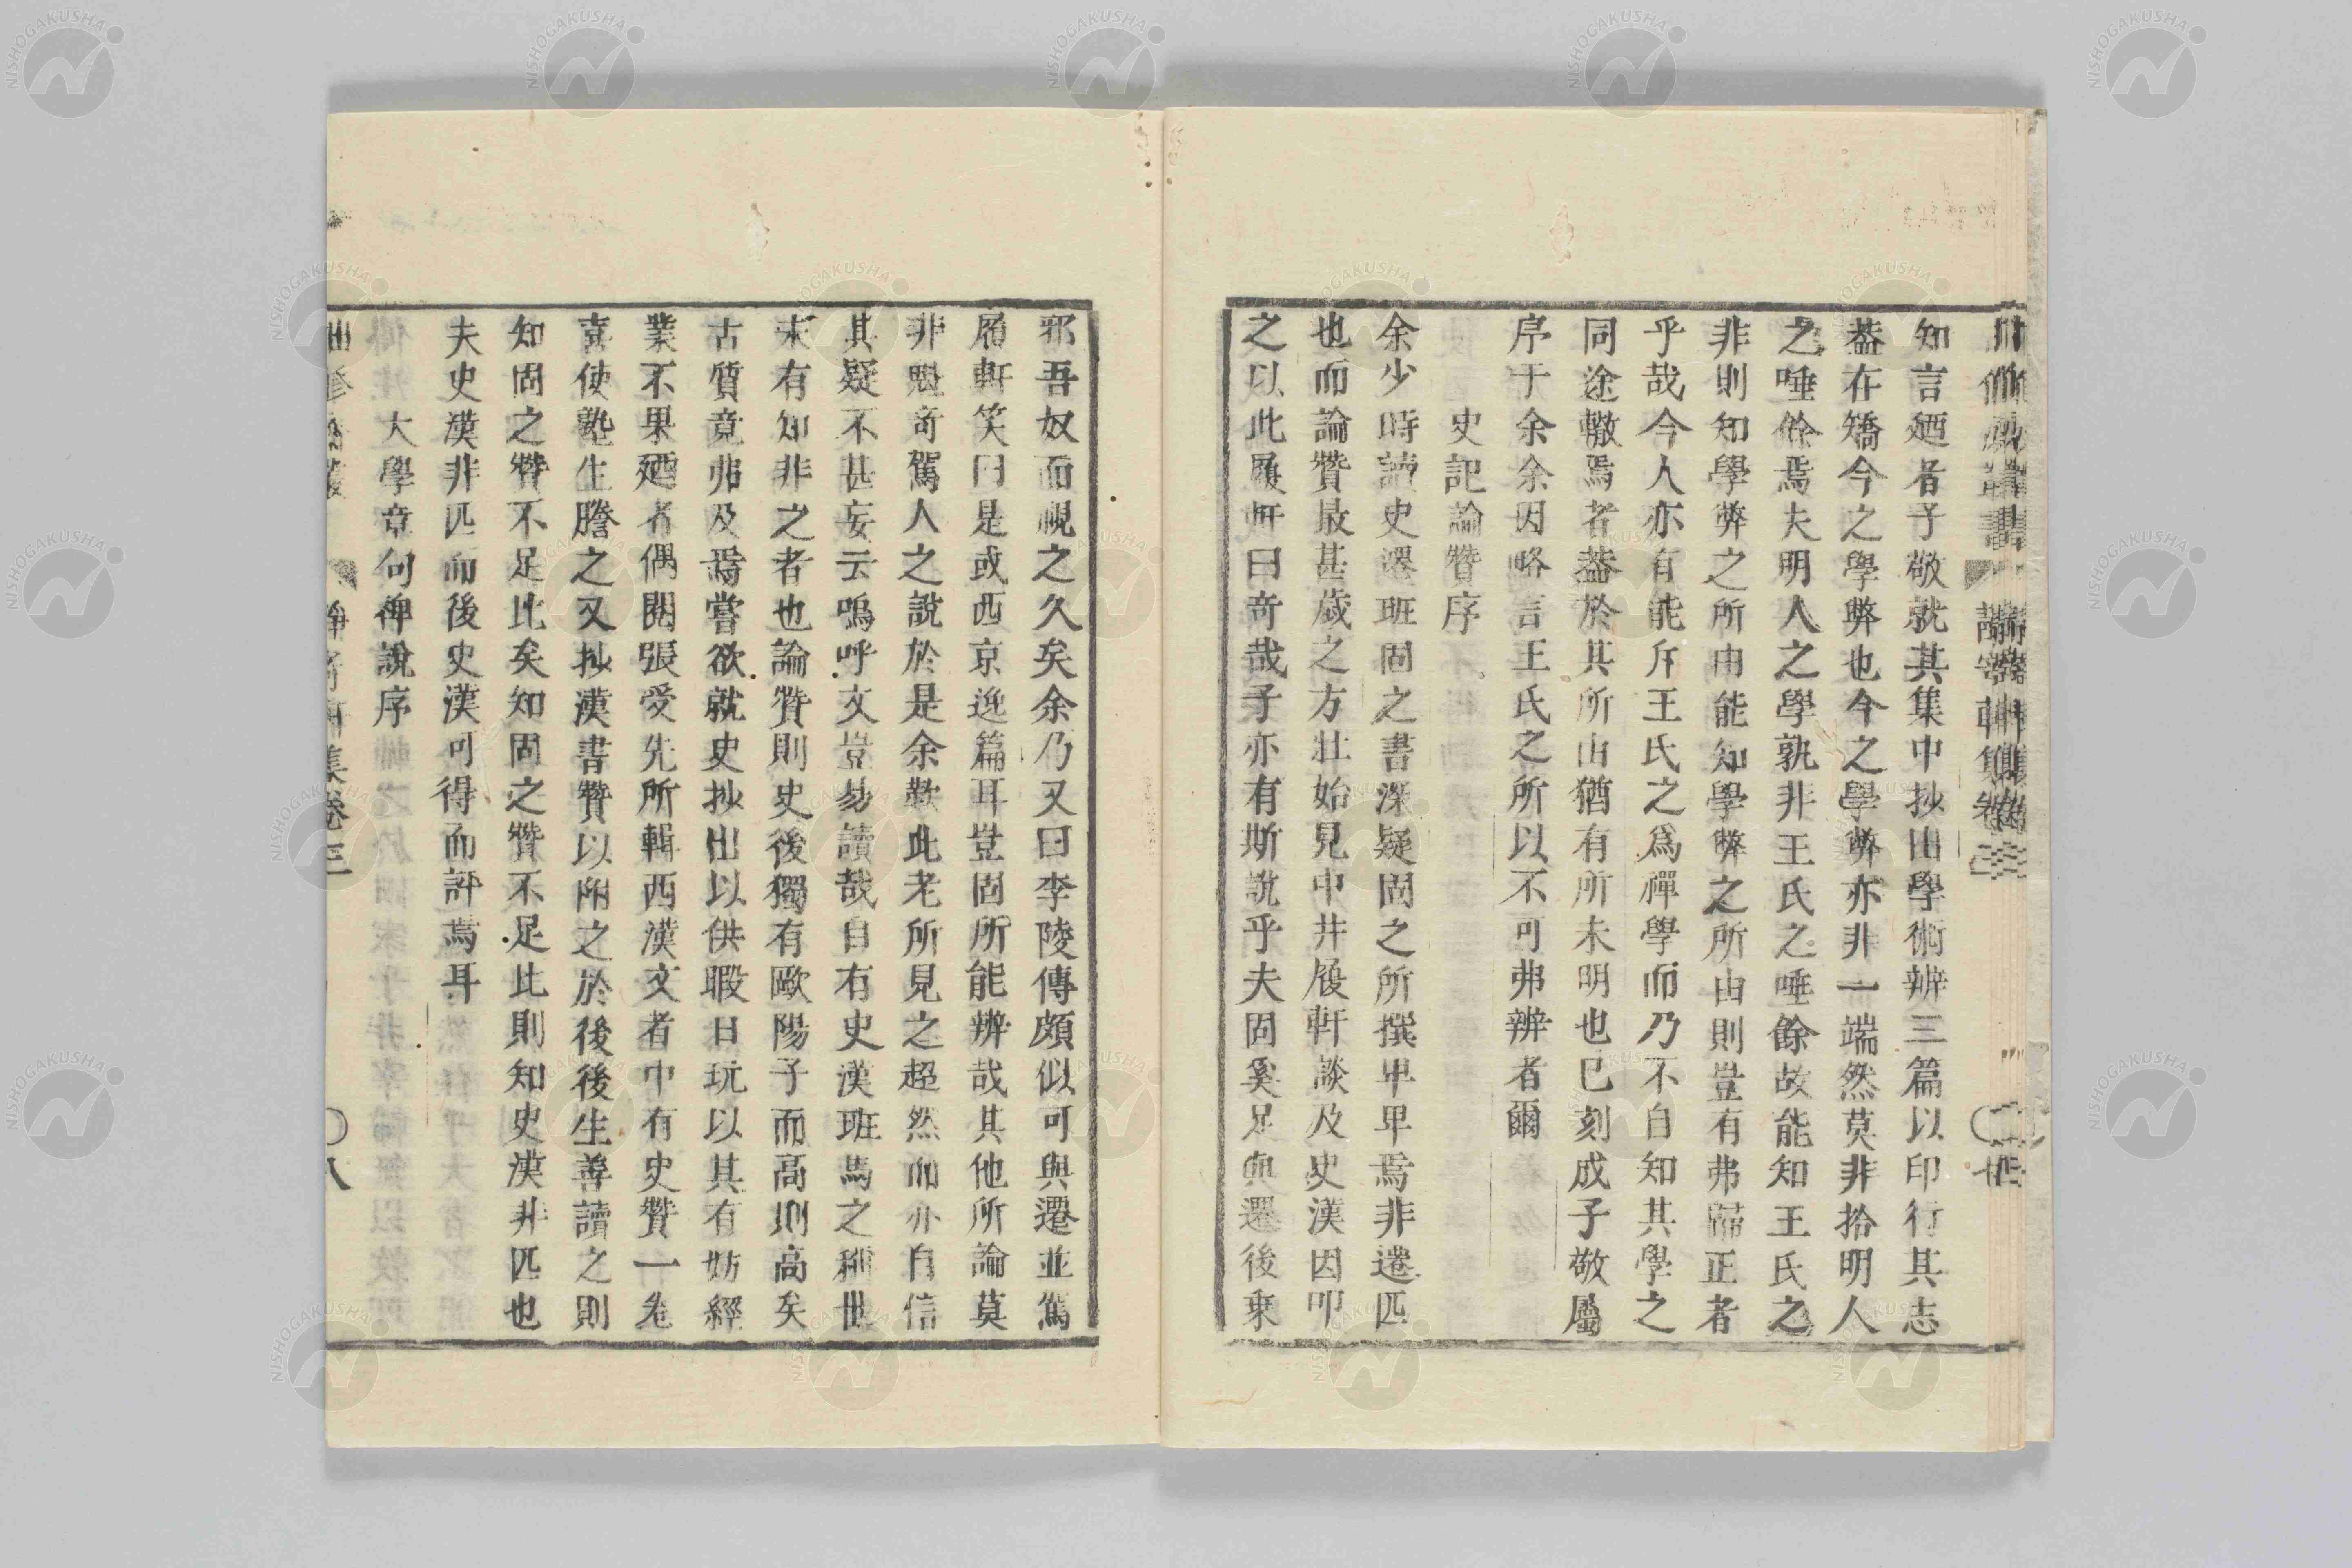 知言廼者子敬就其集中抄出學術辨三篇以印行其志
葢在矯今之學弊也今之學弊亦非一端然莫非拾明人
之唾餘焉夫明人之學孰非王氏之唾餘故能知王氏之
非則知學弊之所由能知學弊之所由則豈有弗歸正者
乎哉今人亦有能斥王氏之爲禪學而乃不自知其學之
同途轍焉者葢於其所由猶有所未明也已刻成子敬屬
序于余余因略言王氏之所以不可弗辨者爾
史記論贊序
余少時讀史遷班固之書深疑固之所撰卑卑焉非遷匹
也而論贊最甚歲之方壯始見中井履軒談及史漢因叩
之以此履軒曰奇哉子亦有斯說乎夫固奚足與遷後乘
邪吾奴而視之久矣余乃又曰李陵傳頗似可與遷並駕
履軒笑曰是或西京逸篇耳豈固所能辨哉其他所論莫
非魁奇駕人之說於是余歎此老所見之超然而亦自信
其疑不甚妄云嗚呼文豈易讀哉自有史漢班馬之稱世
未有知非之者也論贊則史後獨有歐陽子而高則高矣
古質竟弗及焉嘗欲就史抄出以供暇日玩以其有妨經
業不果廼者偶閱張受先所輯西漢文者中有史贊一卷
喜使塾生謄之又抄漢書贊以附之於後後生善讀之則
知固之贊不足比矣知固之贊不足比則知史漢非匹也
夫史漢非匹而後史漢可得而評焉耳
大學章句禪說序
集卷三
〇八